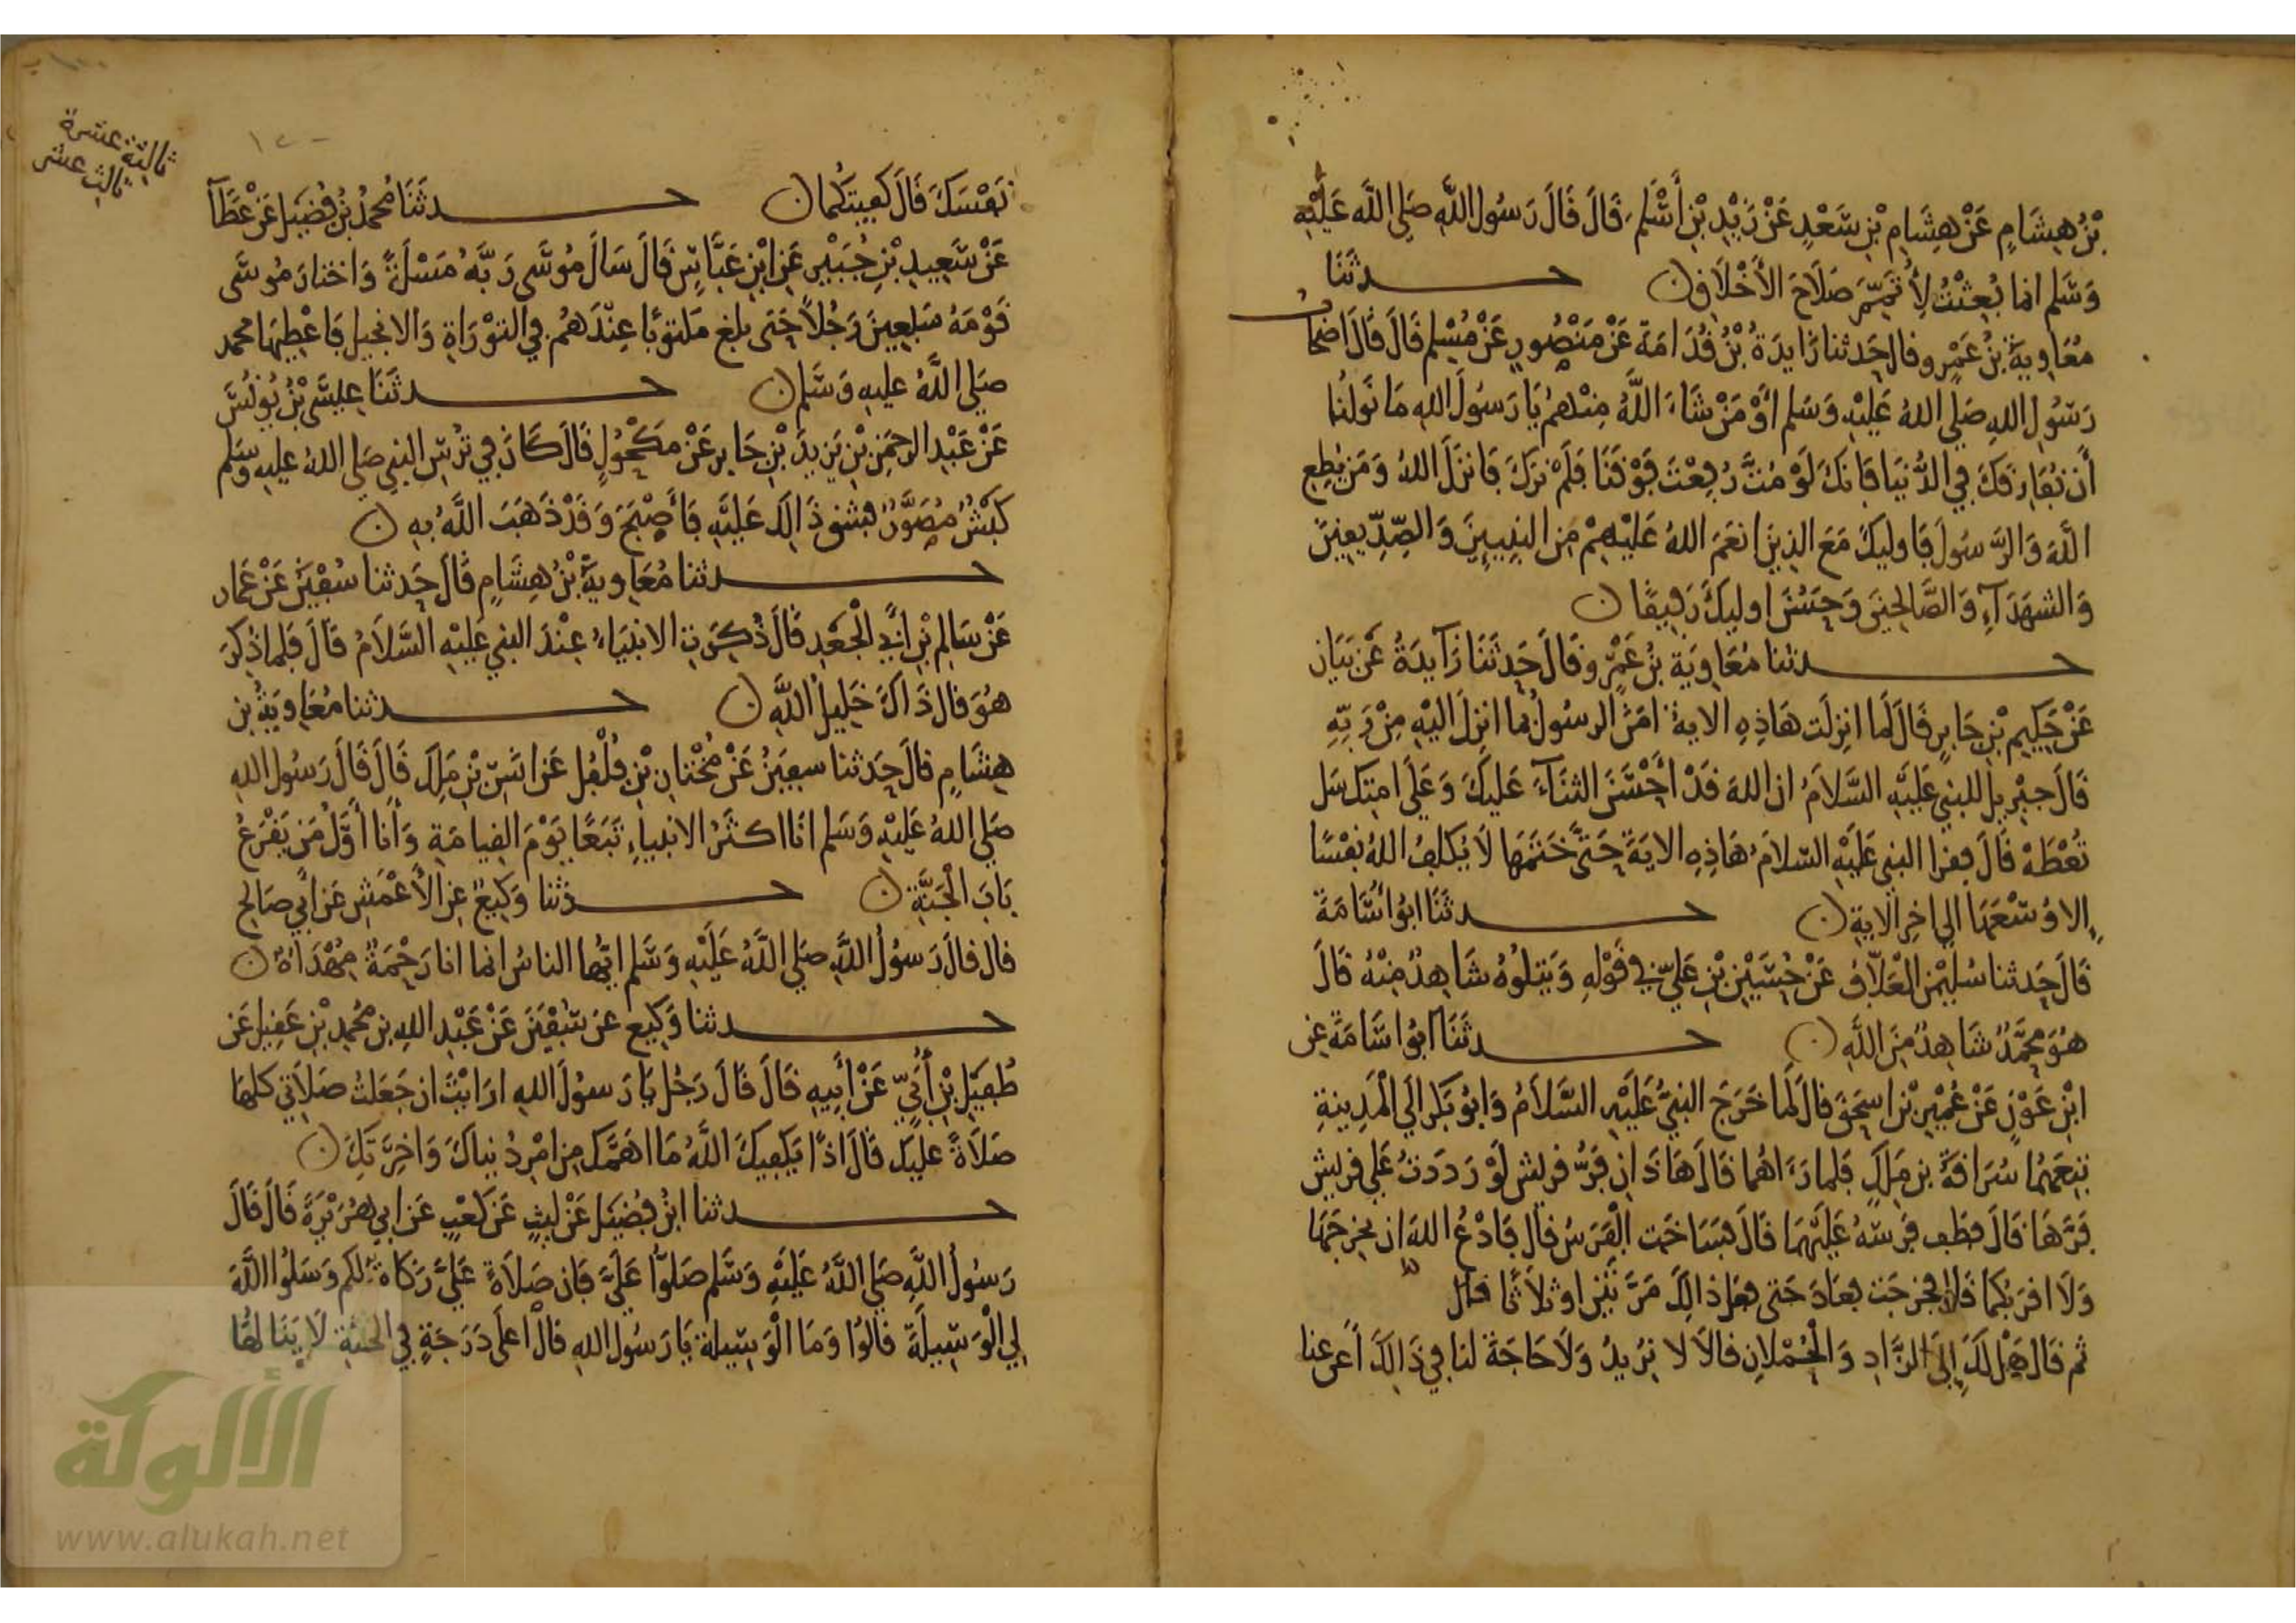 بْنُ هِشَامٍ عَنْ هِشَامِ بْنِ سَعْدٍ عَنْ زَيْدِ بْنِ أَسْلَمَ قَالَ قَالَ رَسُولُ اللَّهِ صَلَى اللَّه عَلَيْهِ
وَسَلم انما بُعِثْتُ لِأُتَمِّمَ صَلَاحَ الأَخْلَاقِ ن حدثَنَا
مُعَاوِيَةُ بْنُ عَمْرٍو قال حَدثنا زَايِدَةُ بْنُ قُدَامَةَ عَنْ مَنْصُورٍ عَنْ مُسْلِمٍ قَالَ قَالَ اصْحَابُ
رَسُولِ اللهِ صَلى اللهُ عَلَيْهِ وَسَلم أَوْ مَنْ شَاءَ اللَّهُ مِنْهمُ يَا رَسُولَ اللهِ مَا نَوْلُنَا
أَن نُفَارِقَكَ فِي الدُّنيَا فَانكَ لَوْ مُتَّ رُفِعْتَ فَوْقَنَا فَلَمْ نَرَكَ فَانزَلَ اللهُ وَمَن يُطِعِ
اللَّهَ وَالرَّسُولَ فَاوليكَ مَعَ الذِينَ انعَمَ اللهُ عَلَيْهِمْ مِنَ النبِيينَ وَالصِّدِّيقِينَ
وَالشهَدَآءِ وَالصَّالِحِينَ وَحَسُنَ اوليكَ رَفِيقًا ن
حدثنا مُعَاوِيَة بْنُ عَمْرٍو قَالَ حَدثَنَا زَآيدَةُ عَنْ بَيَانٍ
عَنْ حَكِيمِ بْنِ جَابِرٍ قَالَ لَما انزِلَت هَاذِهِ الاية امَنَ الرسُولُ بما انزِلَ اليْهِ مِنْ رَبِّهِ
قَالَ جبْرِيل للنبي عَلَيْهِ السَّلَامُ ان اللهَ قَدْ أَحْسَنَ الثنَآءَ عَلَيكَ وَعَلَى امتِكَ سَل
تُعْطَهْ قَالَ فقرا النبي عَلَيْهِ السلامُ هَاذِهِ الايَةَ حَتَّى خَتَمَهَا لَا يُكَلِفُ اللهُ نفْسًا
الا وُسْعَهَا الى اخِرِ الايةِ ن حدثَنَا ابُو اسَامَةَ
قَالَ حَدثنا سُلَيْمن الْعَلَّافُ عَنْ حُسَيْنِ بْنِ عَلِيٍّ فِي قَوْلِهِ وَيَتلُوهُ شَاهِدٌ مِنْهُ قَالَ
هُوَ مُحَمَّدٌ شَاهِدٌ مِنَ اللَّهِ ن حدثَنَا ابُو اسَامَةَ عَن
ابْنِ عَوْنٍ عَنْ عُمَيْرِ بْنِ اسحَقَ قالَ لَما خَرَجَ النبيُّ عَلَيْهِ السَّلَامُ وَابُو بَكر الَى الْمَدِينةِ
تبِعَهُمَا سُرَاقةُ بن مَلِكٍ فَلما رَءَاهُما قَالَ هَاذَانِ فَرُّ قريش لَوْ رَدَدتُ عَلَى قريش
فَرَّهَا قَالَ فطَفَ فَرَسَهُ عَلَيْهِمَا قَالَ فسَاخَت الْفَرَسُ قال فَادْعُ اللهَ ان يخرجَهَا
وَلَا اقرَبُكمَا قَالَ فخرجَت فعَادَ حَتى فعَل ذالِكَ مَرَّتَيْنِ او ثلَاثًا قال
ثم قَال هَل لَكَ إِلَى الزَّادِ وَالْحُمْلَانِ قالَا لا نرِيدُ وَلَا حَاجَةَ لنا فِي ذَالِكَ أَغنِ عنا
ثالثة عشرة
ثالث عشر
نَفْسَكَ قَالَ كفيتكُمَا ن حدثَنَا مُحمدُ بْنُ فُضَيل عَنْ عَطَآ
عَنْ سَعِيدِ بْنِ جُبَيْرٍ عَنِ ابْنِ عَبَّاسٍ قَالَ سَالَ مُوسَى رَبَّهُ مَسْلَةً وَاختارَ مُوسَى
قَوْمَهُ سَبعِينَ رَجُلاً حَتى بلغَ مَكتوبًا عِنْدَهمُ فِي التوْرَاةِ وَالانجيل فَاعْطِيهَا محمد
صَلى اللَّهُ عليهِ وَسَلم ن حدثَنَا عِيسَى بْنُ يُونُسَ
عَنْ عَبْدِ الرحمَنِ بْنِ يَزِيدَ بْنِ جَابِر عَنْ مَكْحُولٍ قَالَ كَانَ فِي تُرْسِ النبي صَلى اللهُ عليهِ وَسَلم
كَبْشٌ مُصَوَّرٌ فشق ذَالِكَ عَلَيْهِ فَأَصْبَحَ وَقَدْ ذَهَبَ اللَّهُ بِهِ ن
حدثنا مُعَاوِيَةُ بْنُ هِشَامٍ قَالَ حَدثنا سُفْيَنُ عَنْ عَمار
عَنْ سَالِمِ بْنِ أَبِي الْجَعْدِ قَالَ ذُكِرَتِ الانبيَاءُ عِنْدَ النبي عَلَيْهِ السَّلَامُ قَالَ فَلما ذُكرَ
هُوَ قَال ذَاكَ خَلِيلُ اللَّهِ ن حدثنا مُعَاوِيَةُ بن
هِشَامٍ قالَ حَدثنا سفيَنُ عَنْ مُخْتَارِ بْنِ فُلْفُل عَن انَسِ بْنِ مَلِكٍ قَالَ قَالَ رَسُولُ اللهِ
صَلى اللهُ عَلَيْهِ وَسَلم انَا اكثَرُ الانبياءِ تَبَعًا يَوْمَ القِيامَةِ وَأَنا أَوَّلُ مَن يَقْرَعُ
بَابَ الْجَنَّةِ ن حدثنا وَكِيعٌ عَنِ الأَعْمَشِ عَن أَبِي صَالِح
قال قالَ رَسُولُ اللَّهِ صَلى اللَّهُ عَلَيْهِ وَسَّلم ايُّها الناسُ انما انا رَحْمَةٌ مُهْدَاةٌ ن
حدثنا وَكِيع عن سُفْيَنَ عَنْ عَبْدِ اللهِ بن مُحَمدِ بْنِ عَقِيلٍ عَن
طُفَيْلِ بْنِ أُبَيٍّ عَنْ أَبِيهِ قَالَ قَالَ رَجُل يَا رَسُولَ اللهِ ارَايْتَ ان جَعَلتُ صَلَاتِي كلهَا
صَلَاةً عليكَ قَالَ اذًا يَكفِيكَ اللَّهُ مَا اهَمَّكَ مِن امْرِ دُنيَاكَ وَاخِرَتِكَ ن
حدثنا ابْنُ فُضَيَل عَنْ لَيثٍ عَنْ كَعْبٍ عَن ابِي هُرَيْرَةَ قَالَ قَالَ
رَسُولُ اللَّهِ صَلى اللَّهُ عَلَيْهِ وَسَلم صَلوْا عَلَيَّ فَان صَلَاةً عَلَيَّ زَكَاةٌ لكم وَسَلوُا اللَّهَ
لِي الْوَسِيلَةَ قَالُوا وَمَا الْوَسِيلة يَا رَسُولَ اللهِ قالَ أَعلَى دَرَجَةٍ فِي الجَنَّةِ لَا يَنَالهُا
الألوكة
www.alukah.net